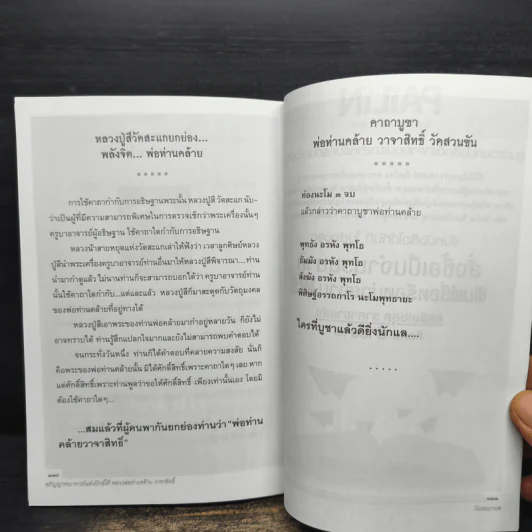 หลวงปู่สีวัดสะแกยกย่อง...
พลังจิต... พ่อท่านคล้าย
* * * * *
การใช้คาถากำกับการอธิษฐานพระนั้น หลวงปู่สี วัดสะแก นับ-
ว่าเป็นผู้ที่มีความสามารถพิเศษในการตรวจเช็กว่าพระเครื่องนั้นๆ
ครูบาอาจารย์ผู้อธิษฐาน ใช้คาถาใดกำกับการอธิษฐาน
หลวงน้าสายหยุดแห่งวัดสะแกเล่าให้ฟังว่า เวลาลูกศิษย์หลวง
ปู่สีนำพระเครื่องครูบาอาจารย์ท่านอื่นมาให้หลวงปู่สีพิจารณา...ท่าน
นำมากำดูแล้ว ไม่นานท่านก็จะสามารถบอกได้ว่า ครูบาอาจารย์ท่าน
นั้นใช้คาถาใดกำกับ...แต่และแล้ว หลวงปู่สีก็มาสะดุดกับวัตถุมงคล
ของพ่อท่านคล้ายที่อยู่ทางใต้
หลวงปู่สีเอาพระของท่านพ่อคล้ายมากำอยู่หลายวัน ก็ยังไม่
อาจทราบได้ ท่านรู้สึกแปลกใจมากและยังไม่สามารถพบคำตอบได้
จนกระทั่งวันหนึ่ง ท่านก็ได้คำตอบที่คลายความสงสัย นั่นก็
คือพระของพ่อท่านคล้ายนั้น มิได้ศักดิ์สิทธิ์เพราะคาถาใดๆ เลย หาก
แต่ศักดิ์สิทธิ์เพราะท่านพูดว่าขอให้ศักดิ์สิทธิ์ เพียงเท่านั้นเอง โดยมิ
ต้องใช้คาถาใดๆ...
...สมแล้วที่ผู้คนพากันยกย่องท่านว่า "พ่อท่าน
คล้ายวาจาสิทธิ์"
คาถาบูชา
พ่อท่านคล้าย วาจาสิทธิ์ วัดสวนขัน
* * * * *
ท่องนะโม ๓ จบ
แล้วกล่าวว่าคาถาบูชาพ่อท่านคล้าย
พุทธัง อรหัง พุทโธ
ธัมมัง อรหัง พุทโธ
สังฆัง อรหัง พุทโธ
พิศิษฐ์อรรถกาโร นะโมพุทธายะ
ใครที่บูชาแล้วดียิ่งนักแล....
. . . . .